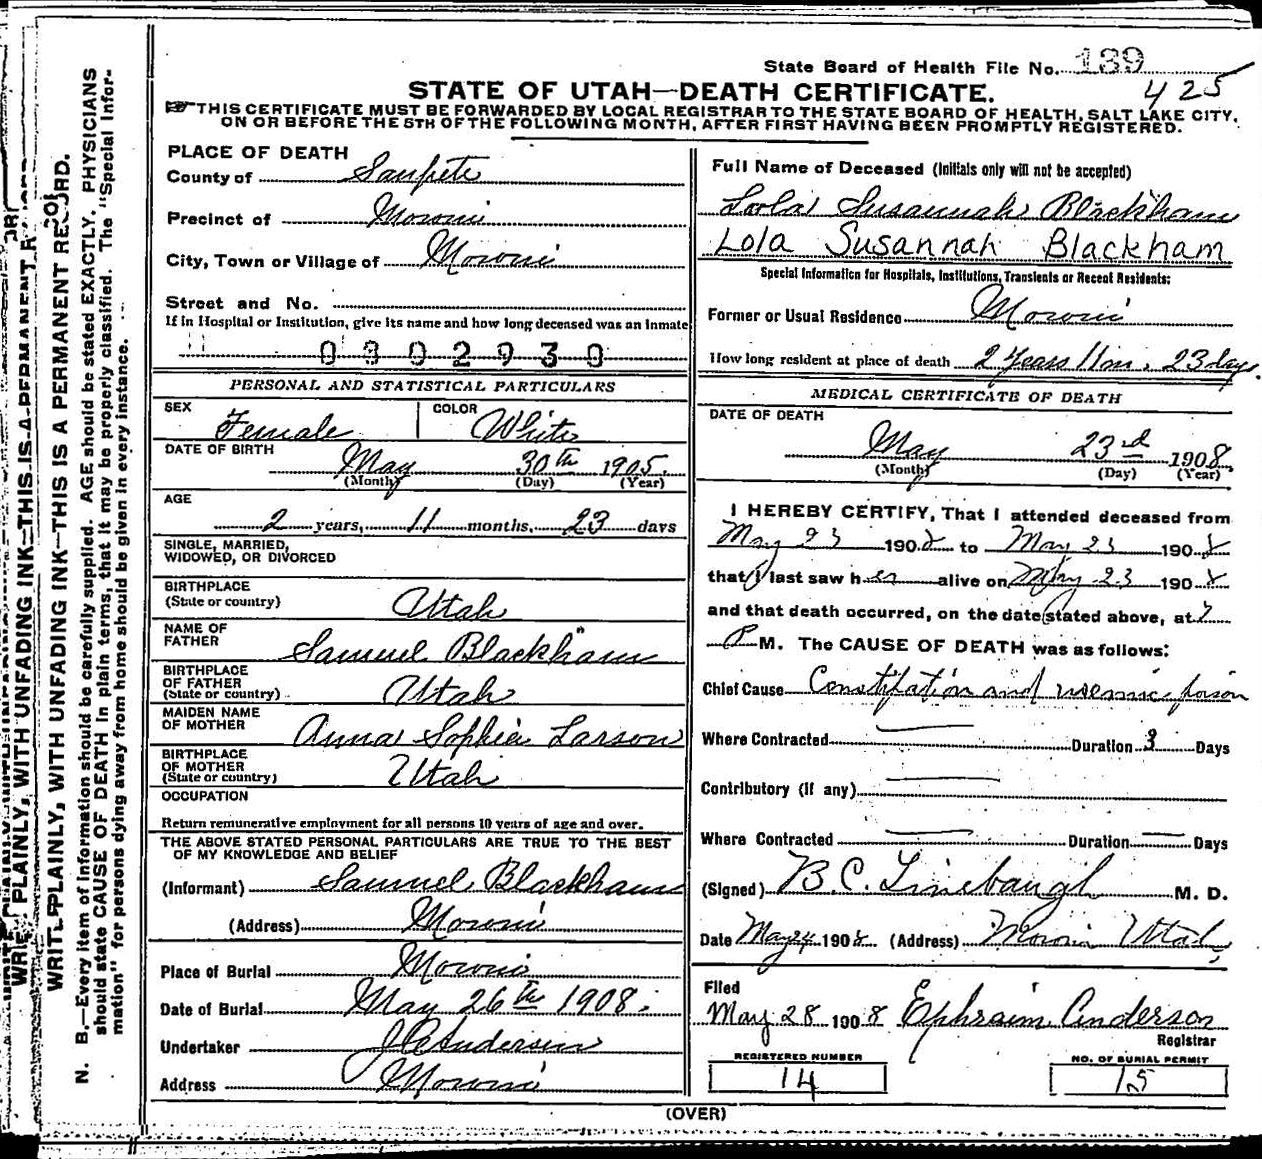 State Board of Health File No. 139
425
STATE OF UTAH—DEATH CERTIFICATE.
THIS CERTIFICATE MUST BE FORWARDED BY LOCAL REGISTRAR TO THE STATE BOARD OF HEALTH, SALT LAKE CITY,
ON OR BEFORE THE 5TH OF THE FOLLOWING MONTH, AFTER FIRST HAVING BEEN PROMPTLY REGISTERED.
PLACE OF DEATH
County of Sanpete
Precinct of Moroni
City, Town or Village of Moroni
Street and No.
If in Hospital or Institution, give its name and how long deceased was an inmate
0302930
PERSONAL AND STATISTICAL PARTICULARS
SEX Female
COLOR White
DATE OF BIRTH
May 30th 1905.
(Month) (Day) (Year)
AGE
2 years, 11 months, 23 days
SINGLE, MARRIED,
WIDOWED, OR DIVORCED
BIRTHPLACE
(State or country) Utah
NAME OF
FATHER Samuel Blackham
BIRTHPLACE
OF FATHER
(State or country) Utah
MAIDEN NAME
OF MOTHER Anna Sophia Larson
BIRTHPLACE
OF MOTHER
(State or country) Utah
OCCUPATION
Return remunerative employment for all persons 10 years of age and over.
THE ABOVE STATED PERSONAL PARTICULARS ARE TRUE TO THE BEST
OF MY KNOWLEDGE AND BELIEF
(Informant) Samuel Blackham
(Address) Moroni
Place of Burial Moroni
Date of Burial May 26th 1908.
Undertaker J C Andersen
Address Moroni
Full Name of Deceased (Initials only will not be accepted)
Lola Susannah Blackham
Lola Susannah Blackham
Special Information for Hospitals, Institutions, Transients or Recent Residents:
Former or Usual Residence Moroni
How long resident at place of death 2 Years 11m. 23 days.
MEDICAL CERTIFICATE OF DEATH
DATE OF DEATH
May 23rd 1908.
(Month) (Day) (Year)
I HEREBY CERTIFY, That I attended deceased from
May 23 1908 to May 23 1908
that I last saw her alive on May 23 1908
and that death occurred, on the date stated above, at 7
P M. The CAUSE OF DEATH was as follows:
Chief Cause Constipation and uremic poison
Where Contracted Duration 3 Days
Contributory (If any)
Where Contracted Duration Days
(Signed) B.C. Linebaugh M. D.
Date May 24 1908 (Address) Moroni Utah,
Filed
May 28 1908 Ephraim Anderson
Registrar
REGISTERED NUMBER
14
NO. OF BURIAL PERMIT
15
(OVER)
WRITE PLAINLY, WITH UNFADING INK—THIS IS A PERMANENT RECORD.
N. B.—Every item of information should be carefully supplied. AGE should be stated EXACTLY. PHYSICIANS
should state CAUSE OF DEATH in plain terms, that it may be properly classified. The "Special Infor-
mation" for persons dying away from home should be given in every instance.